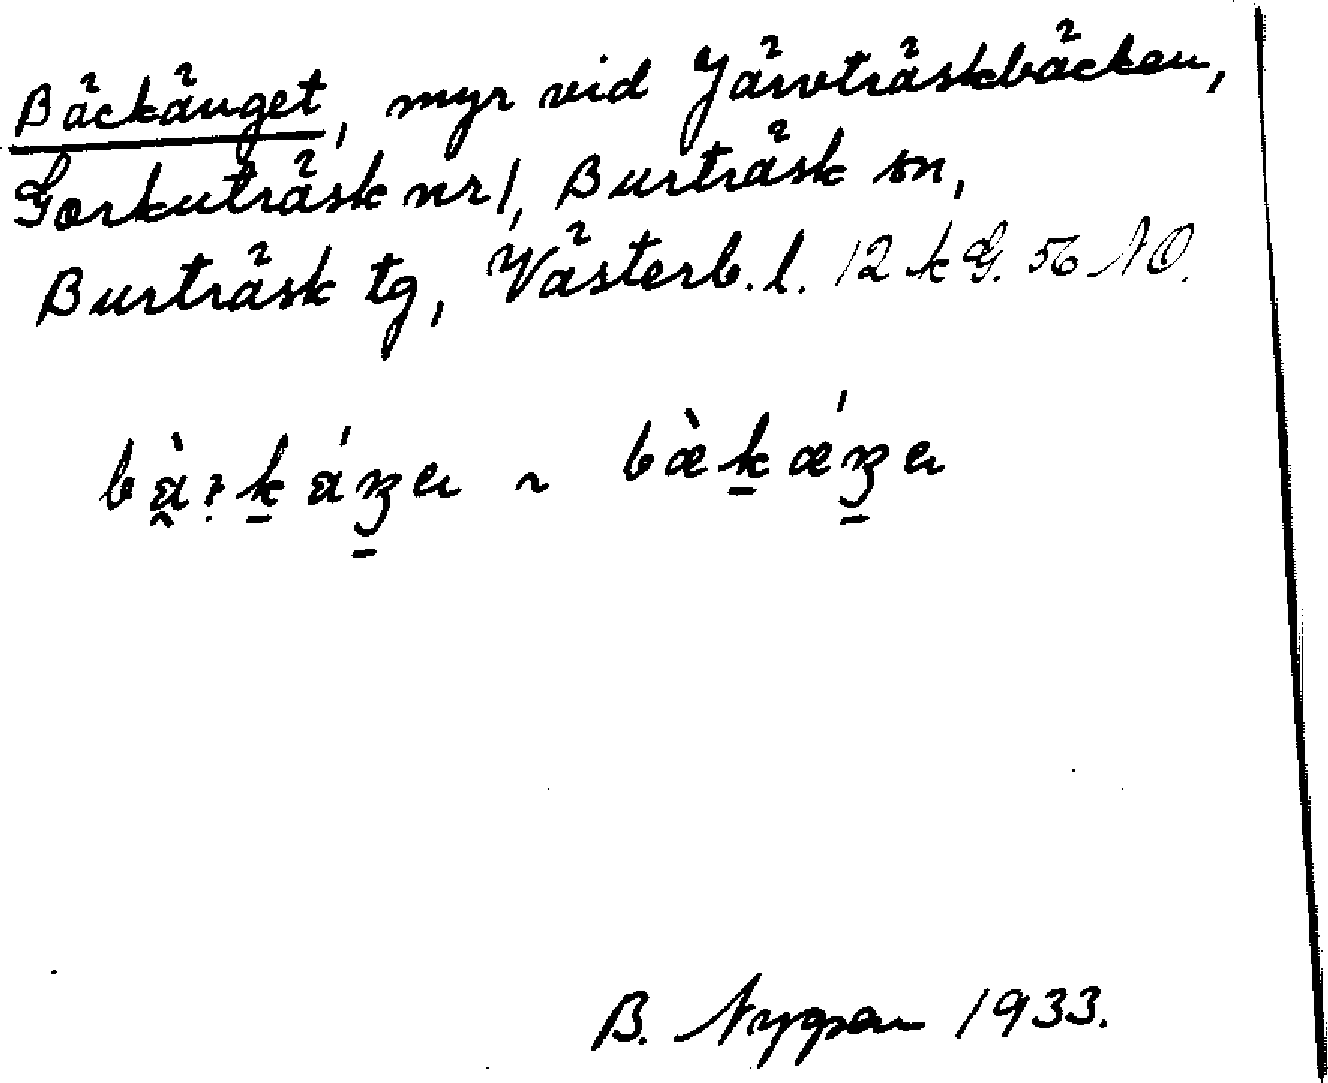 Bäckänget, myr vid Järvträskbäcken,
Gorkuträsk nr 1, Burträsk sn,
Burträsk tg, Västerb. l. 12 k G. 56 NO.
B. Nygren 1933.